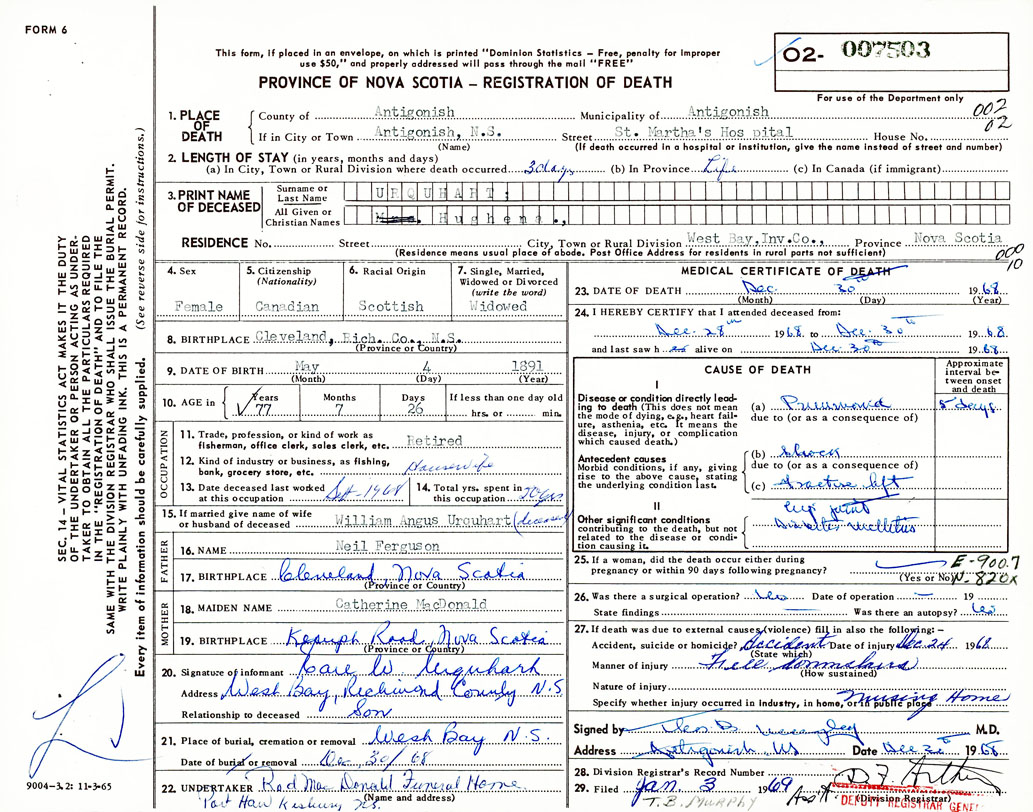 FORM 6
This form, if placed in an envelope, on which is printed "Dominion Statistics – Free, penalty for improper
use $50," and properly addressed will pass through the mail "FREE"
02- 007503
PROVINCE OF NOVA SCOTIA – REGISTRATION OF DEATH
For use of the Department only
002
02
1. PLACE OF DEATH County of Antigonish Municipality of Antigonish
If in City or Town Antigonish, N.S. Street St. Martha's Hos pital House No.
(Name) (If death occurred in a hospital or institution, give the name instead of street and number)
2. LENGTH OF STAY (in years, months and days)
(a) In City, Town or Rural Division where death occurred 3 days (b) In Province Life (c) In Canada (if immigrant)
3. PRINT NAME OF DECEASED Surname or Last Name URQUHART;
All Given or Christian Names Mrs. Hughena.,
RESIDENCE No. Street City, Town or Rural Division West Bay, Inv.Co., Province Nova Scotia
(Residence means usual place of abode. Post Office Address for residents in rural parts not sufficient)
000
10
4. Sex Female
5. Citizenship (Nationality) Canadian
6. Racial Origin Scottish
7. Single, Married, Widowed or Divorced (write the word) Widowed
8. BIRTHPLACE Cleveland, Rich. Co., N.S.
(Province or Country)
9. DATE OF BIRTH May 4 1891
(Month) (Day) (Year)
10. AGE in Years 77 Months 7 Days 26 If less than one day old hrs. or min.
OCCUPATION
11. Trade, profession, or kind of work as fisherman, office clerk, sales clerk, etc. Retired
12. Kind of industry or business, as fishing, bank, grocery store, etc. Housewife
13. Date deceased last worked at this occupation Sept-1968
14. Total yrs. spent in this occupation 50 yrs
15. If married give name of wife or husband of deceased William Angus Urquhart (deceased)
FATHER
16. NAME Neil Ferguson
17. BIRTHPLACE Cleveland, Nova Scotia
(Province or Country)
MOTHER
18. MAIDEN NAME Catherine MacDonald
19. BIRTHPLACE Kempth Road, Nova Scotia
(Province or Country)
20. Signature of informant W. Urquhart
Address West Bay, Richmond County N.S
Relationship to deceased Son
21. Place of burial, cremation or removal West Bay N.S.
Date of burial or removal Dec 30/68
22. UNDERTAKER Rod Mac Donald Funeral Home
Port Hawkesbury N.S.
(Name and address)
MEDICAL CERTIFICATE OF DEATH
23. DATE OF DEATH Dec. 30th 1968
(Month) (Day) (Year)
24. I HEREBY CERTIFY that I attended deceased from:
Dec. 28th 1968 to Dec. 30th 1968
and last saw h er alive on Dec 30th 1968
CAUSE OF DEATH
Approximate interval between onset and death
I
Disease or condition directly leading to death (This does not mean the mode of dying, e.g., heart failure, asthenia, etc. It means the disease, injury, or complication which caused death.)
(a) Pneumonia 5 days
due to (or as a consequence of)
Antecedent causes
Morbid conditions, if any, giving rise to the above cause, stating the underlying condition last.
(b) Shock
due to (or as a consequence of)
(c) Fracture left
hip joint
II
Other significant conditions contributing to the death, but not related to the disease or condition causing it.
Diabetes mellitus
25. If a woman, did the death occur either during pregnancy or within 90 days following pregnancy?
(Yes or No)
E-900.7
N-820x
26. Was there a surgical operation? Date of operation — 19
State findings — Was there an autopsy?
27. If death was due to external causes (violence) fill in also the following:–
Accident, suicide or homicide? Accident Date of injury Dec 24 1968
(State which)
Manner of injury Fell downstairs
(How sustained)
Nature of injury
Specify whether injury occurred in industry, in home, or in public place Nursing Home
Signed by M.D.
Address Antigonish, NS Date Dec 30 1968
28. Division Registrar's Record Number
29. Filed Jan. 3 1969
(Division Registrar)
T. B. MURPHY
DEPUTY REGISTRAR GENE
SEC. 14 – VITAL STATISTICS ACT MAKES IT THE DUTY
OF THE UNDERTAKER OR PERSON ACTING AS UNDER-
TAKER TO OBTAIN ALL THE PARTICULARS REQUIRED
IN THE "REGISTRATION OF DEATH" AND TO FILE THE
SAME WITH THE DIVISION REGISTRAR WHO SHALL ISSUE THE BURIAL PERMIT.
WRITE PLAINLY WITH UNFADING INK. THIS IS A PERMANENT RECORD.
Every item of information should be carefully supplied. (See reverse side for instructions.)
9004-3.2: 11-3-65